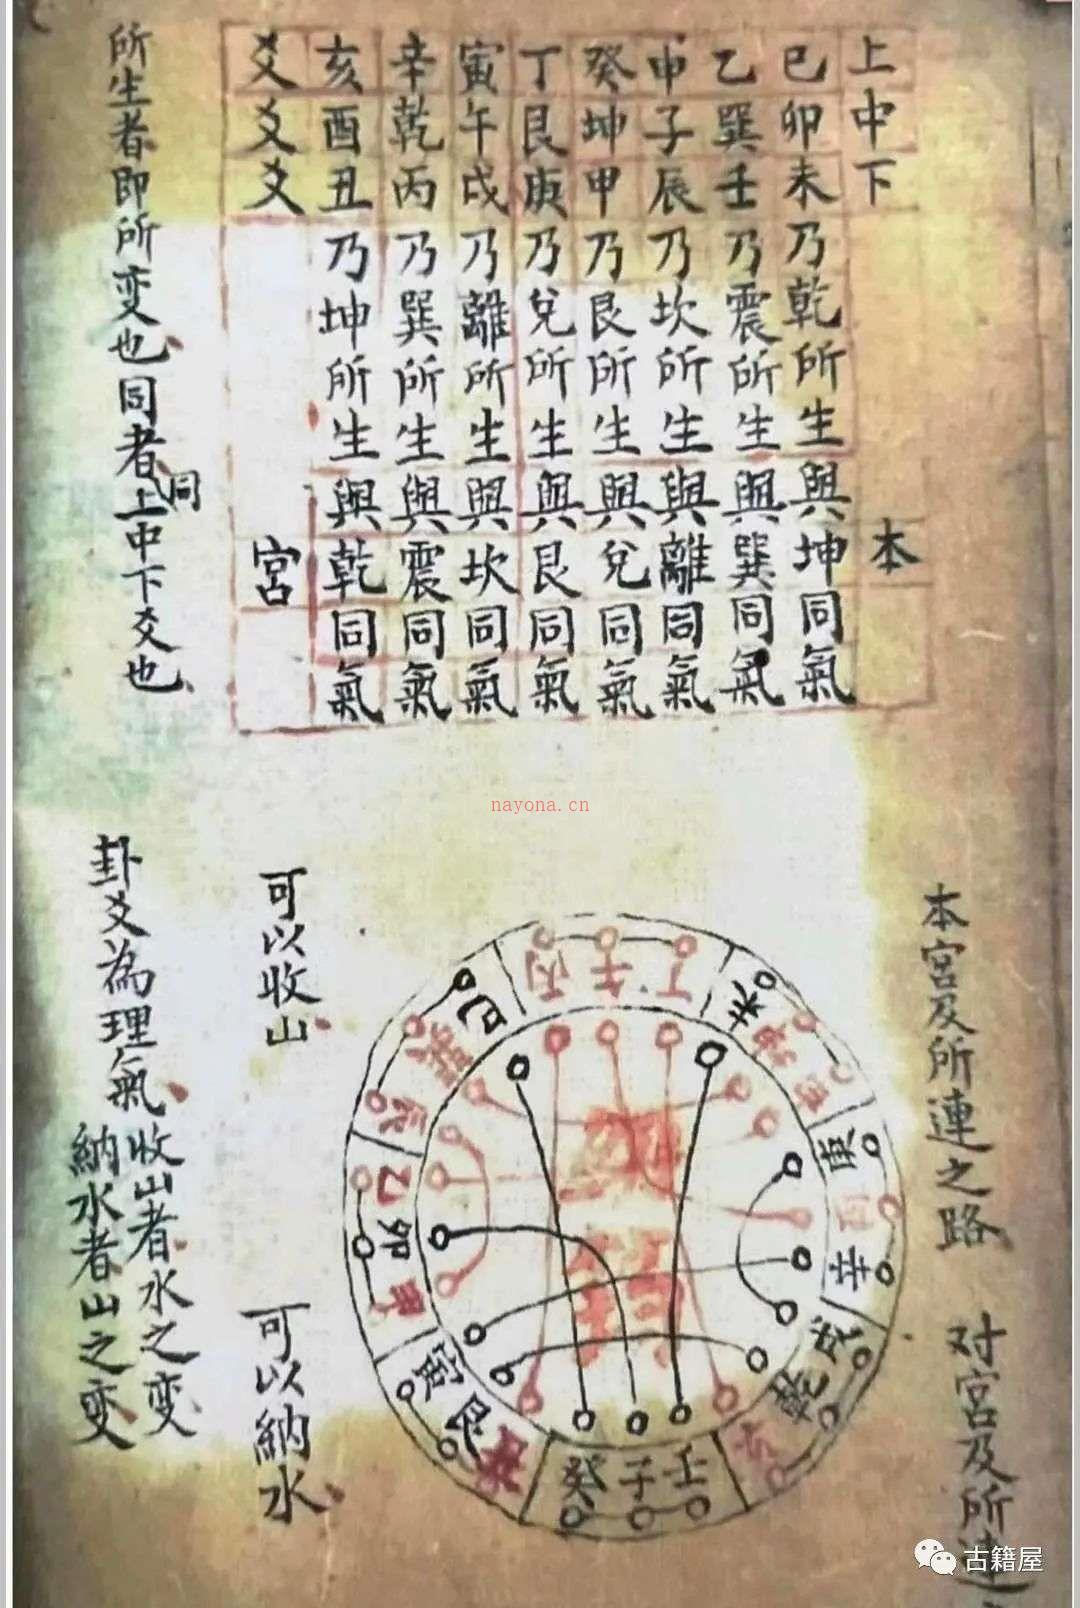 上中下
本
巳卯未乃乾所生與坤同氣
乙巽壬乃震所生與巽同氣
申子辰乃坎所生與離同氣
癸坤甲乃艮所生與兌同氣
丁艮庚乃兌所生與艮同氣
寅午戌乃離所生與坎同氣
辛乾丙乃巽所生與震同氣
亥酉丑乃坤所生與乾同氣
爻爻爻
宮
所生者即所变也同者同上中下爻也
nayona.cn
本宮及所連之路
可以收山
对宮及所連
可以納水
卦爻為理氣
收山者水之变
納水者山之变
丙午丁
未坤申
庚酉辛
戌乾亥
壬子癸
丑艮寅
甲卯乙
辰巽巳
古籍屋